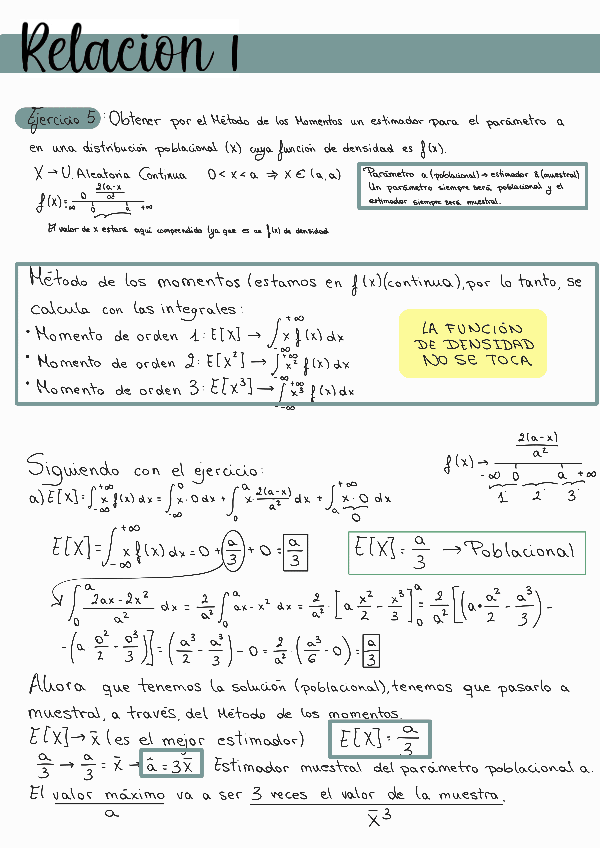 Relacion 1
Ejercicio 5: Obtener por el Método de los Momentos un estimador para el parámetro a
en una distribución poblacional (X) cuya función de densidad es f(x).
X → V. Aleatoria Continua 0 < x < a ⇒ X ∈ (a, a)
Parámetro a (poblacional) → estimador â (muestral)
Un parámetro siempre será poblacional y el
estimador siempre será muestral.
f(x) = 0 2(a-x)/a²
-∞ 0 a +∞
El valor de x estará aquí comprendido (ya que es un f(x) de densidad
Método de los momentos (estamos en f(x)(continua), por lo tanto, se
calcula con las integrales:
• Momento de orden 1: E[X] → ∫_{-∞}^{+∞} x f(x) dx
• Momento de orden 2: E[X²] → ∫_{-∞}^{+∞} x² f(x) dx
• Momento de orden 3: E[X³] → ∫_{-∞}^{+∞} x³ f(x) dx
LA FUNCIÓN
DE DENSIDAD
NO SE TOCA
Siguiendo con el ejercicio:
f(x) → 2(a-x)/a²
-∞ 0 a +∞
1 2 3
a) E[X] = ∫_{-∞}^{+∞} x f(x) dx = ∫_{-∞}^{0} x·0 dx + ∫_{0}^{a} x·2(a-x)/a² dx + ∫_{a}^{+∞} x·0 dx
0
E[X] = ∫_{-∞}^{+∞} x f(x) dx = 0 + a/3 + 0 = a/3
E[X] = a/3 → Poblacional
∫_{0}^{a} 2ax-2x²/a² dx = 2/a² ∫_{0}^{a} ax-x² dx = 2/a² · [a x²/2 - x³/3]_{0}^{a} = 2/a² [(a·a²/2 - a³/3) -
-(a 0²/2 - 0³/3)] = (a³/2 - a³/3) - 0 = 2/a² · (a³/6 - 0) = a/3
Ahora que tenemos la solución (poblacional), tenemos que pasarlo a
muestral, a través, del Método de los momentos.
E[X] → x̄ (es el mejor estimador) E[X] = a/3
a/3 → a/3 = x̄ → â = 3x̄ Estimador muestral del parámetro poblacional a.
El valor máximo va a ser 3 veces el valor de la muestra.
a x̄ 3